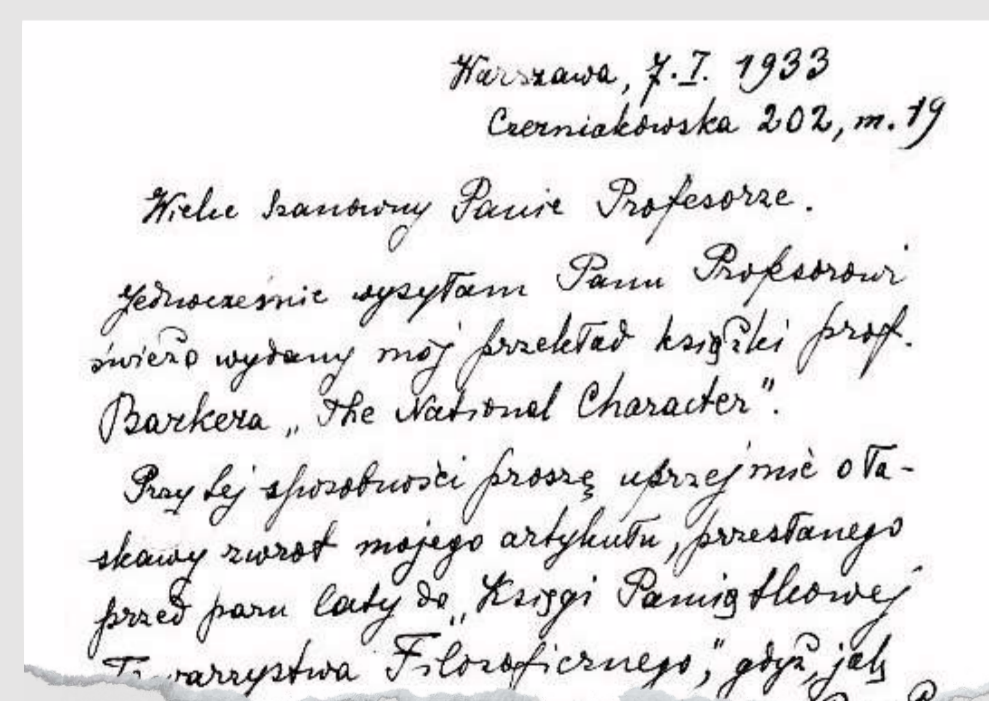 Warszawa, 7.I. 1933
Czerniakowska 202, m. 19
Wielce Szanowny Panie Profesorze.
Jednocześnie wysyłam Panu Profesorowi
świeżo wydany mój przekład książki prof.
Barkera „The National Character".
Przy tej sposobności proszę uprzejmie o ła-
skawy zwrot mojego artykułu, przesłanego
przed paru laty do „Księgi Pamiątkowej
Towarzystwa Filozoficznego," gdyż, jak